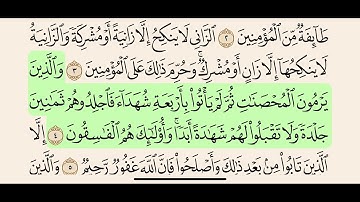 طَآئِفَةٌ مِّنَ ٱلْمُؤْمِنِينَ ٢ ٱلزَّانِى لَا يَنكِحُ إِلَّا زَانِيَةً أَوْ مُشْرِكَةً وَٱلزَّانِيَةُ
لَا يَنكِحُهَآ إِلَّا زَانٍ أَوْ مُشْرِكٌ ۚ وَحُرِّمَ ذَٰلِكَ عَلَى ٱلْمُؤْمِنِينَ ٣ وَٱلَّذِينَ
يَرْمُونَ ٱلْمُحْصَنَٰتِ ثُمَّ لَمْ يَأْتُوا۟ بِأَرْبَعَةِ شُهَدَآءَ فَٱجْلِدُوهُمْ ثَمَٰنِينَ
جَلْدَةً وَلَا تَقْبَلُوا۟ لَهُمْ شَهَٰدَةً أَبَدًا ۚ وَأُو۟لَٰٓئِكَ هُمُ ٱلْفَٰسِقُونَ ٤ إِلَّا
ٱلَّذِينَ تَابُوا۟ مِنۢ بَعْدِ ذَٰلِكَ وَأَصْلَحُوا۟ فَإِنَّ ٱللَّهَ غَفُورٌ رَّحِيمٌ ٥ وَٱلَّذِينَ